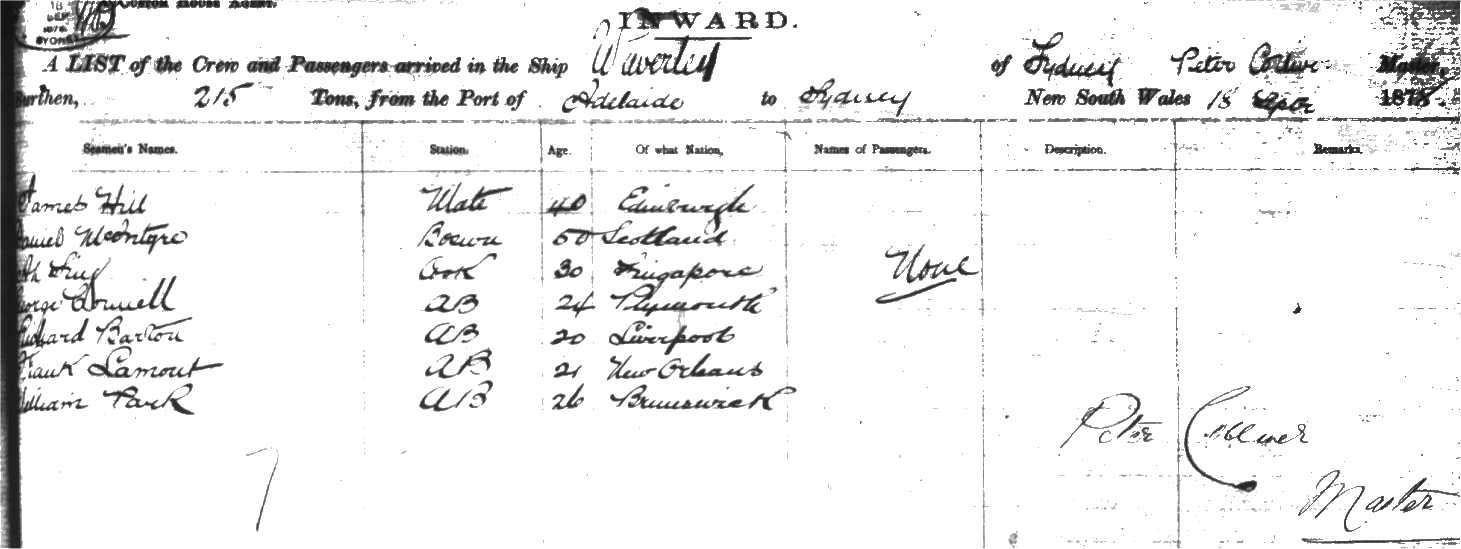 Custom House Agent.
18
1878
SYDNEY
INWARD.
A LIST of the Crew and Passengers arrived in the Ship Waverley of Sydney Peter Master,
Burthen, 215 Tons, from the Port of Adelaide to Sydney New South Wales 18 1878
Seamen's Names. Station. Age. Of what Nation, Names of Passengers. Description. Remarks.
James Hill Mate 40 Edinburgh
Daniel McIntyre Bosun 50 Scotland
Ah Cook 30 Singapore None
George AB 24 Plymouth
Richard Barton AB 20 Liverpool
Frank Lamont AB 21 New Orleans
William Park AB 26 Brunswick
Peter
7
Master